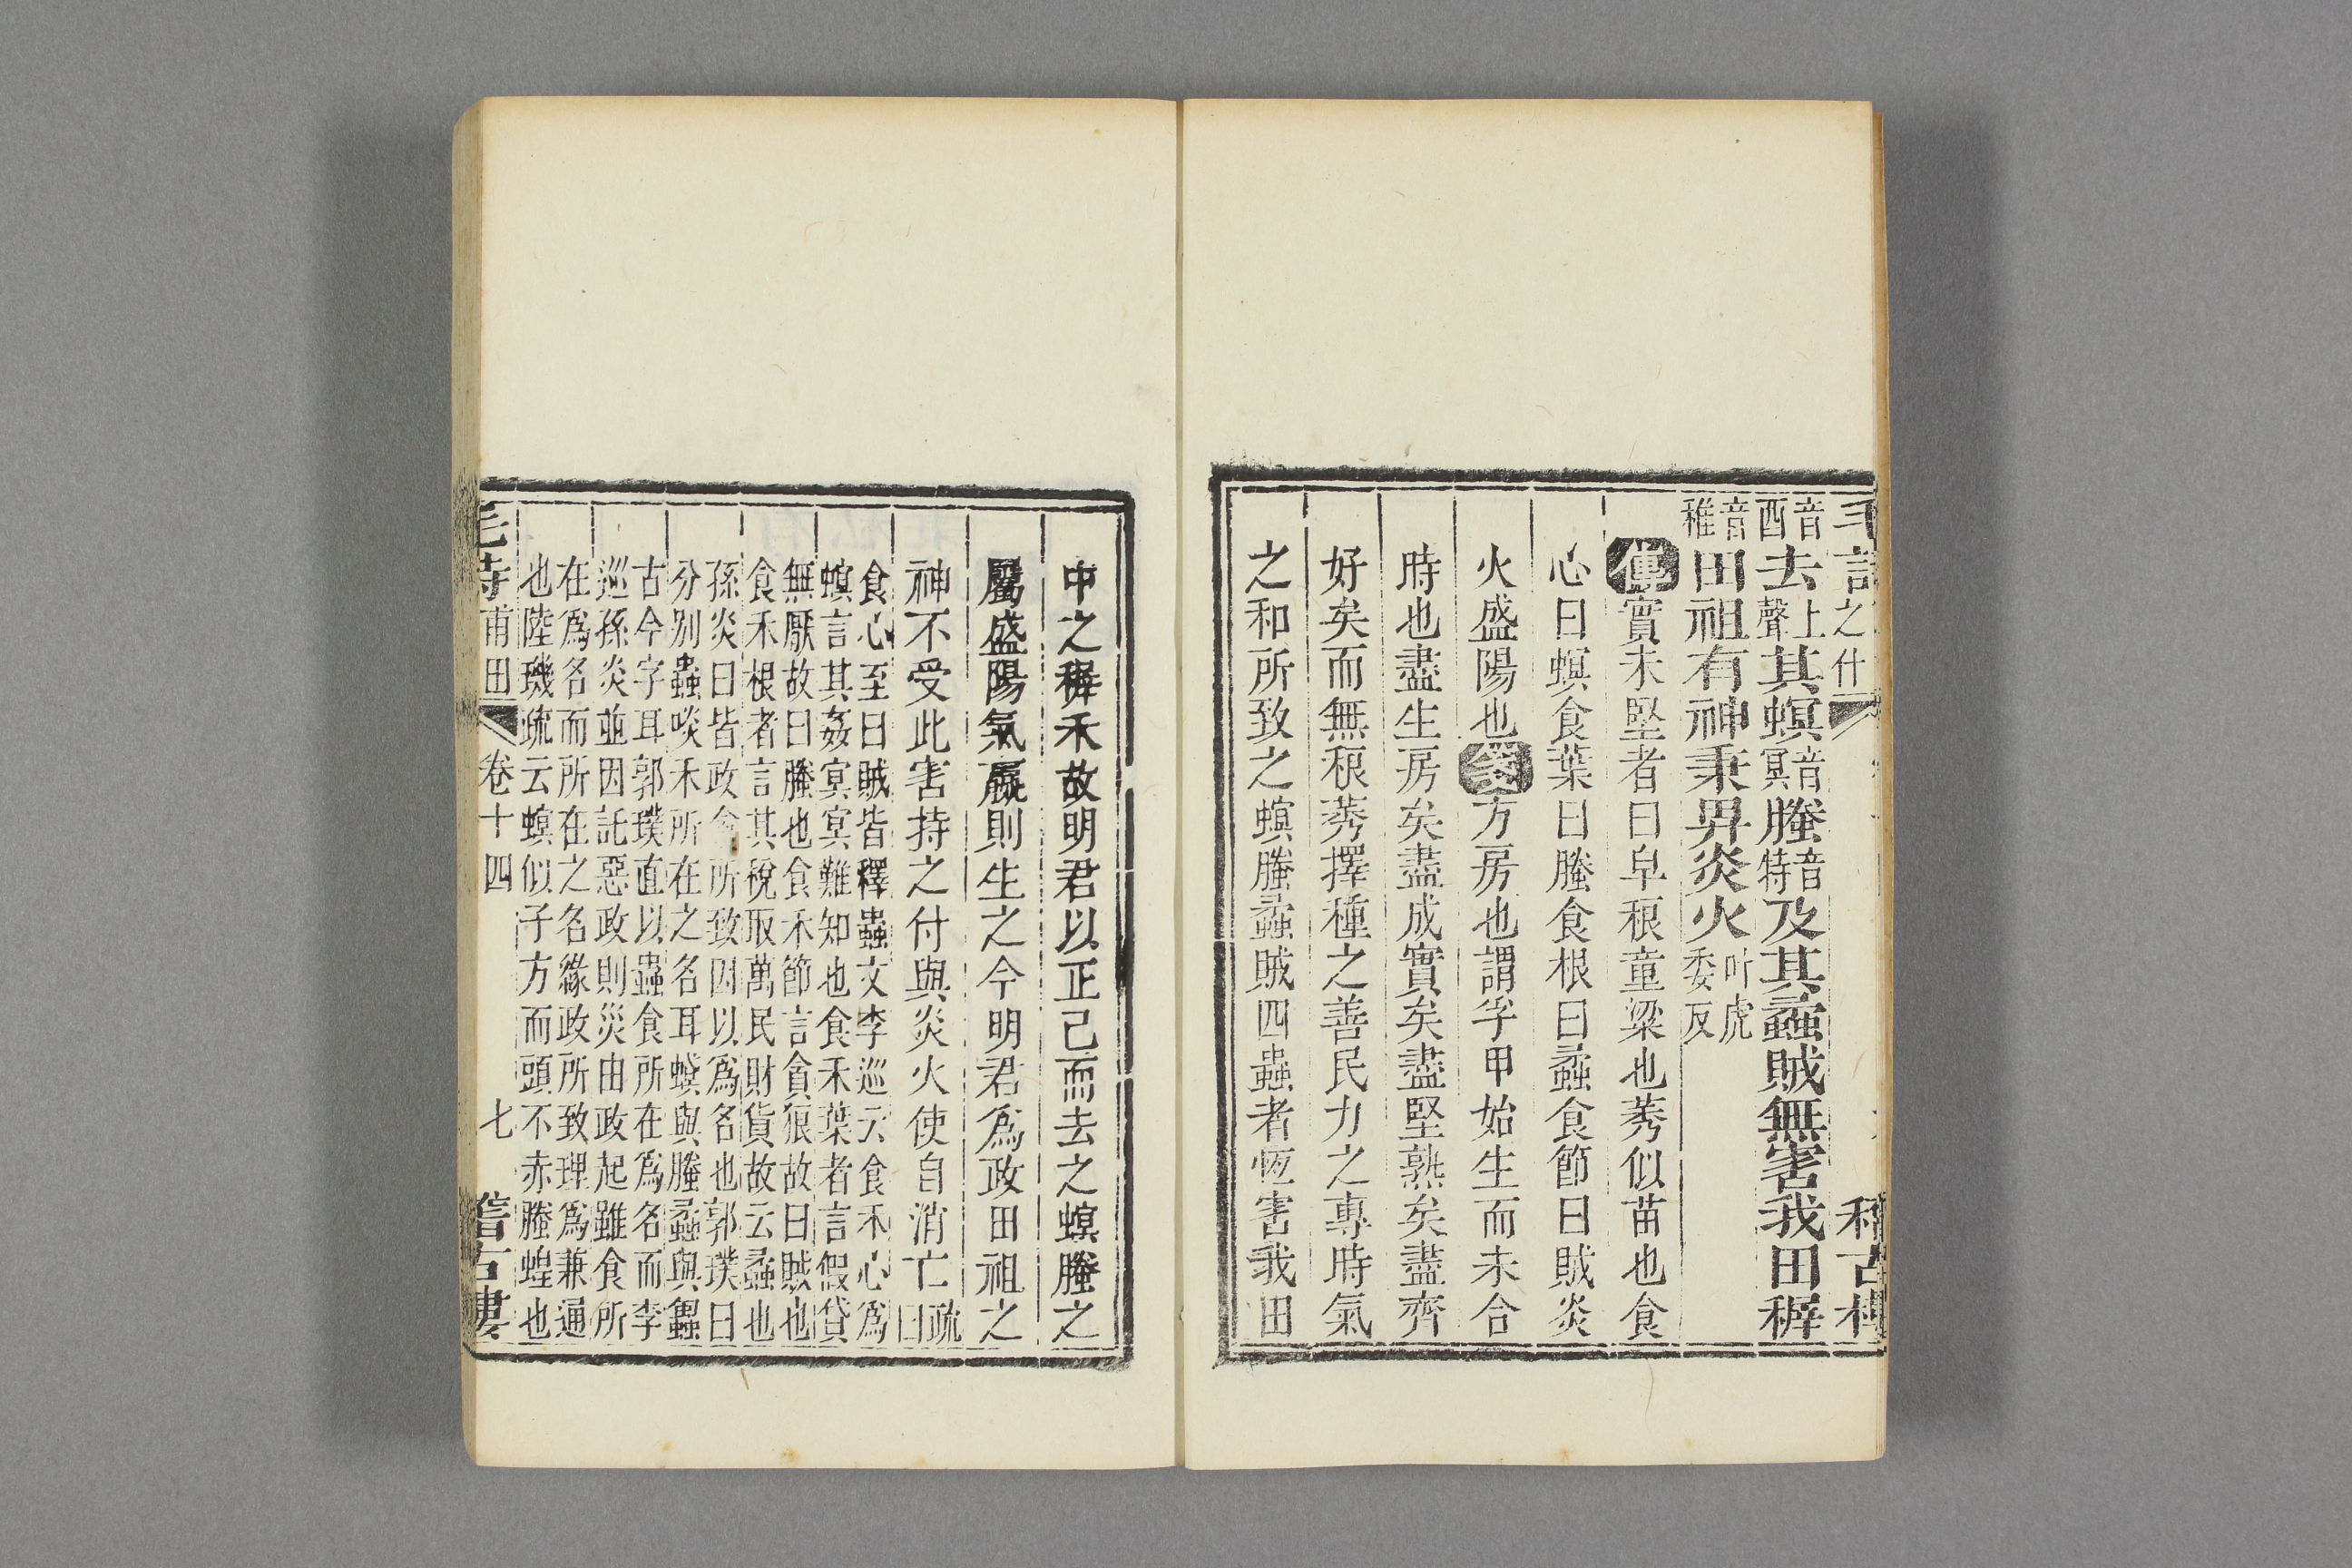 之什
音酉去上聲其螟音冥螣音特及其蟊賊無害我田穉
音稚田祖有神秉畀炎火叶虎委反
傳實未堅者曰皁稂童粱也莠似苗也食
心曰螟食葉曰螣食根曰蟊食節曰賊炎
火盛陽也箋方房也謂孚甲始生而未合
時也盡生房矣盡成實矣盡堅熟矣盡齊
好矣而無稂莠擇種之善民力之專時氣
之和所致之螟螣蟊賊四蟲者恆害我田
中之穉禾故明君以正己而去之螟螣之
屬盛陽氣嬴則生之今明君爲政田祖之
神不受此害持之付與炎火使自消亡疏曰
食心至曰賊皆釋蟲文李巡云食禾心爲
螟言其姦冥冥難知也食禾葉者言假貸
無厭故曰螣也食禾節言貪狼故曰賊也
食禾根者言其稅取萬民財貨故云蟊也
孫炎曰皆政貪所致因以爲名也郭璞曰
分別蟲啖禾所在之名耳螟與螣蟊與蠿
古今字耳郭璞直以蟲食所在爲名而李
巡孫炎並因託惡政則災由政起雖食所
在爲名而所在之名緣政所致理爲兼通
也陸璣疏云螟似子方而頭不赤螣蝗也
毛詩甫田 卷十四 七 稽古樓